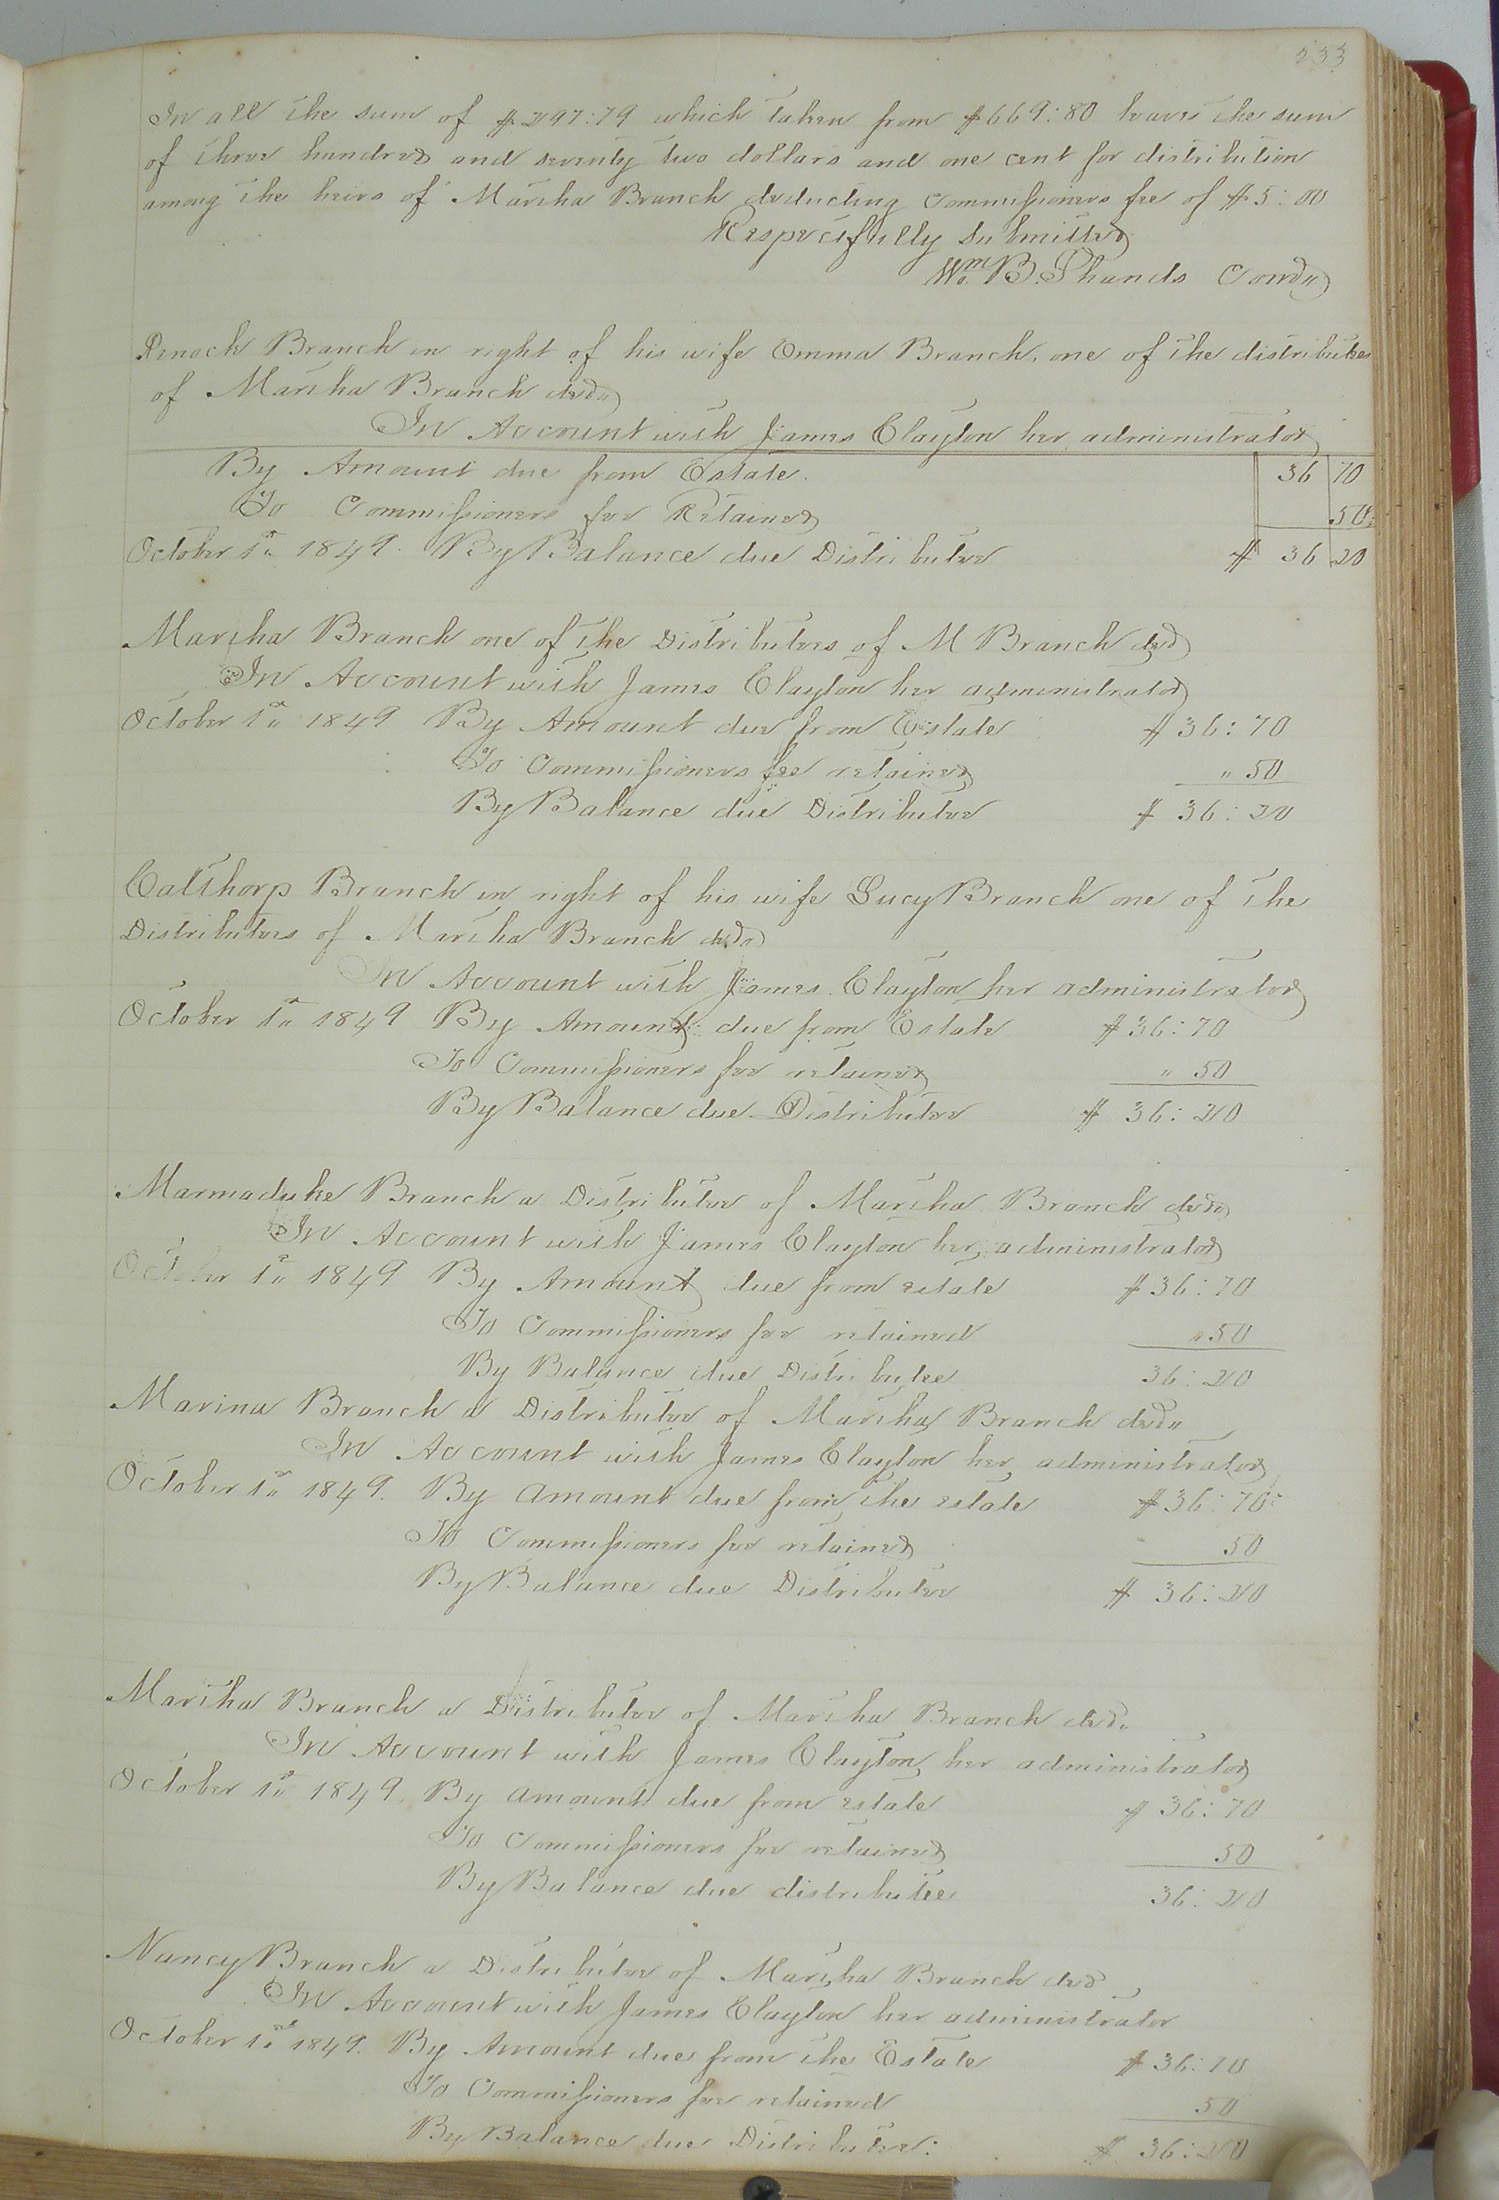 233
In all the sum of $297:79 which taken from $669:80 leaves the sum
of three hundred and seventy two dollars and one cent for distribution
among the heirs of Martha Branch deducting commissioners fee of $5:00
Respectfully Submitted
Wm B. Shands Comr
Penock Branch in right of his wife Emma Branch, one of the distributees
of Martha Branch decd
In Account with James Clayton her administrator
By Amount due from Estate. 36 70
To Commissioners fee Retained 50
October 1st 1849. By Balance due Distributee $ 36 20
Martha Branch one of the Distributees of M Branch decd
In Account with James Clayton her administrator
October 1st 1849 By Amount due from Estate $36:70
To Commissioners fee retained " 50
By Balance due Distributee $ 36:20
Calthorp Branch in right of his wife Lucy Branch one of the
Distributees of Martha Branch decd
In Account with James Clayton her administrator
October 1st 1849 By Amount due from Estate $36:70
To Commissioners fee retained " 50
By Balance due Distributee $ 36:20
Marmaduke Branch a Distributee of Martha Branch decd
In Account with James Clayton her administrator
October 1st 1849 By Amount due from estate $36:70
To Commissioners fee retained " 50
By Balance due Distributee 36:20
Marina Branch a Distributee of Martha Branch decd
In Account with James Clayton her administrator
October 1st 1849. By amount due from the estate $36:70
To Commissioners fee retained 50
By Balance due Distributee $ 36:20
Martha Branch a Distributee of Martha Branch decd
In Account with James Clayton her administrator
October 1st 1849. By amount due from estate $36:70
To Commissioners fee retained 50
By Balance due distributee 36:20
Nancy Branch a Distributee of Martha Branch decd
In Account with James Clayton her administrator
October 1st 1849. By Amount due from the Estate $36:70
To Commissioners fee retained 50
By Balance due Distributee: $ 36:20